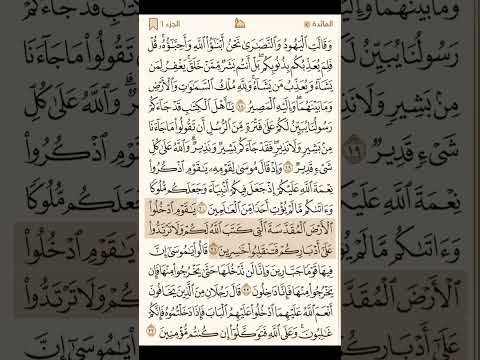 المائدة الجزء ٦
وَقَالَتِ ٱلْيَهُودُ وَٱلنَّصَٰرَىٰ نَحْنُ أَبْنَٰٓؤُا۟ ٱللَّهِ وَأَحِبَّٰٓؤُهُۥ ۚ قُلْ
فَلِمَ يُعَذِّبُكُم بِذُنُوبِكُم ۖ بَلْ أَنتُم بَشَرٌ مِّمَّنْ خَلَقَ ۚ يَغْفِرُ لِمَن
يَشَآءُ وَيُعَذِّبُ مَن يَشَآءُ ۚ وَلِلَّهِ مُلْكُ ٱلسَّمَٰوَٰتِ وَٱلْأَرْضِ
وَمَا بَيْنَهُمَا ۖ وَإِلَيْهِ ٱلْمَصِيرُ ١٨ يَٰٓأَهْلَ ٱلْكِتَٰبِ قَدْ جَآءَكُمْ
رَسُولُنَا يُبَيِّنُ لَكُمْ عَلَىٰ فَتْرَةٍ مِّنَ ٱلرُّسُلِ أَن تَقُولُوا۟ مَا جَآءَنَا
مِنۢ بَشِيرٍ وَلَا نَذِيرٍ ۖ فَقَدْ جَآءَكُم بَشِيرٌ وَنَذِيرٌ ۗ وَٱللَّهُ عَلَىٰ كُلِّ
شَىْءٍ قَدِيرٌ ١٩ وَإِذْ قَالَ مُوسَىٰ لِقَوْمِهِۦ يَٰقَوْمِ ٱذْكُرُوا۟
نِعْمَةَ ٱللَّهِ عَلَيْكُمْ إِذْ جَعَلَ فِيكُمْ أَنۢبِيَآءَ وَجَعَلَكُم مُّلُوكًا
وَءَاتَىٰكُم مَّا لَمْ يُؤْتِ أَحَدًا مِّنَ ٱلْعَٰلَمِينَ ٢٠ يَٰقَوْمِ ٱدْخُلُوا۟
ٱلْأَرْضَ ٱلْمُقَدَّسَةَ ٱلَّتِى كَتَبَ ٱللَّهُ لَكُمْ وَلَا تَرْتَدُّوا۟
عَلَىٰٓ أَدْبَارِكُمْ فَتَنقَلِبُوا۟ خَٰسِرِينَ ٢١ قَالُوا۟ يَٰمُوسَىٰٓ إِنَّ
فِيهَا قَوْمًا جَبَّارِينَ وَإِنَّا لَن نَّدْخُلَهَا حَتَّىٰ يَخْرُجُوا۟ مِنْهَا فَإِن
يَخْرُجُوا۟ مِنْهَا فَإِنَّا دَٰخِلُونَ ٢٢ قَالَ رَجُلَانِ مِنَ ٱلَّذِينَ يَخَافُونَ
أَنْعَمَ ٱللَّهُ عَلَيْهِمَا ٱدْخُلُوا۟ عَلَيْهِمُ ٱلْبَابَ فَإِذَا دَخَلْتُمُوهُ فَإِنَّكُمْ
غَٰلِبُونَ ۚ وَعَلَى ٱللَّهِ فَتَوَكَّلُوٓا۟ إِن كُنتُم مُّؤْمِنِينَ ٢٣